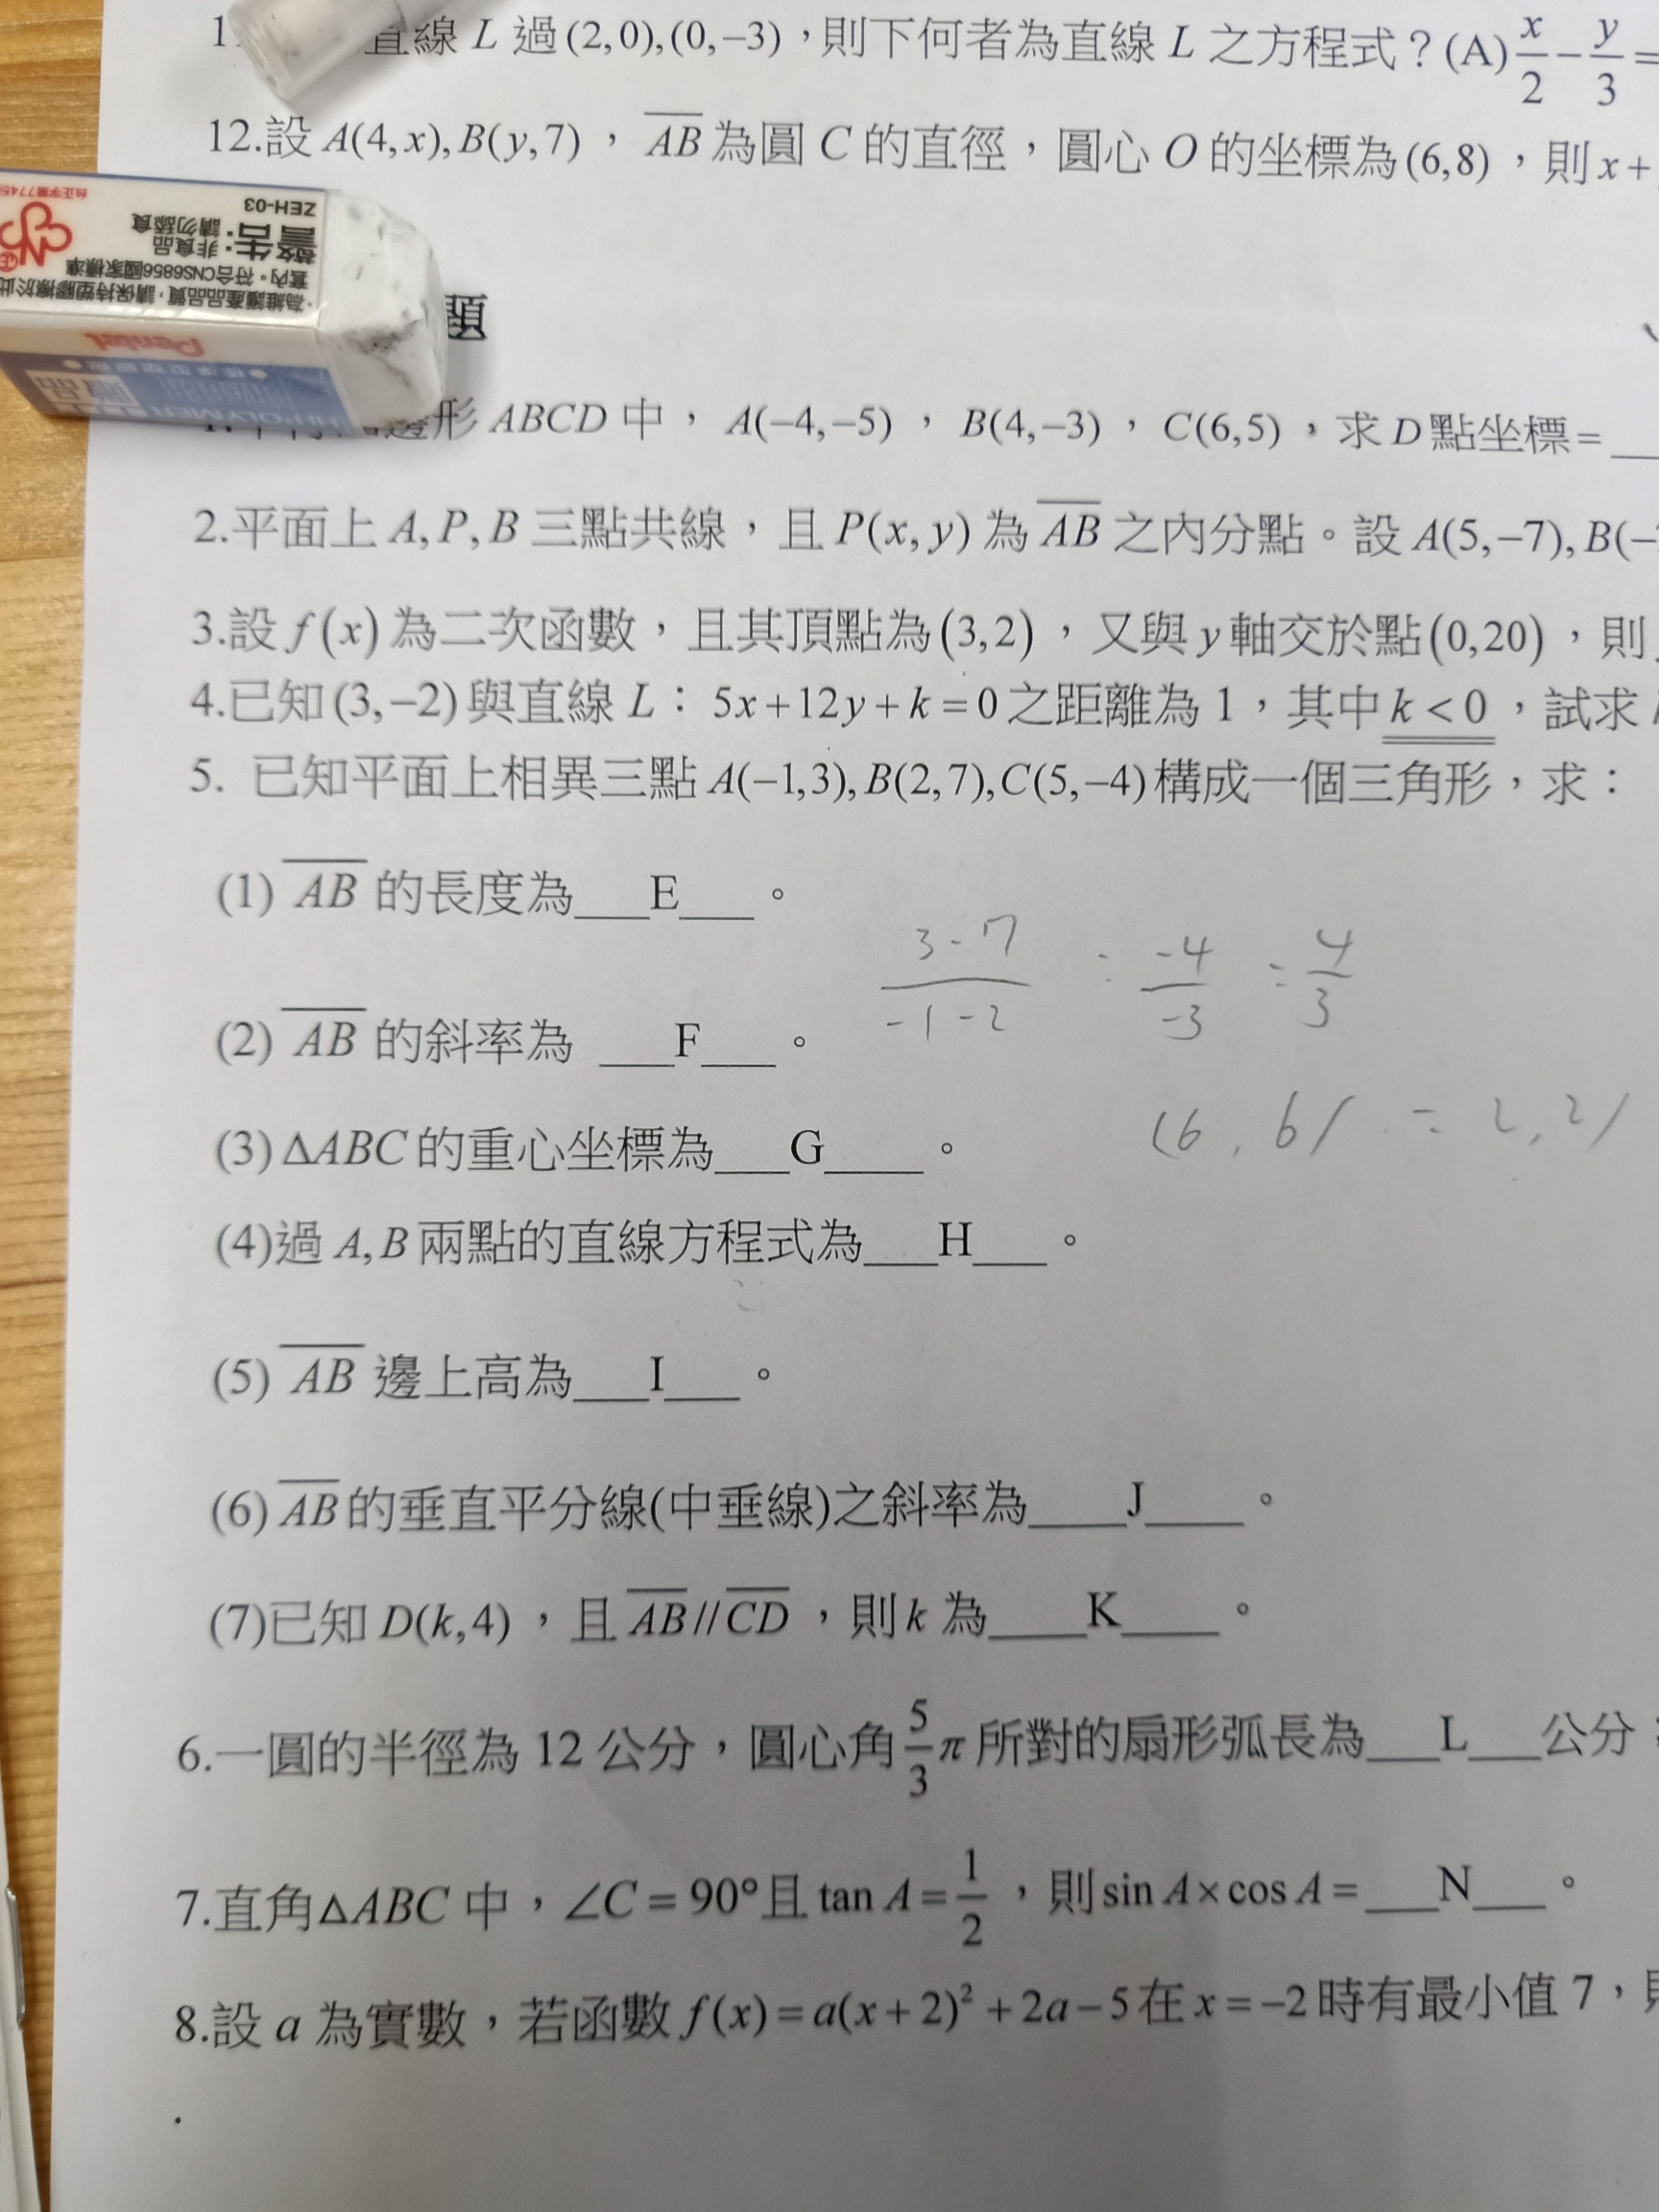 直線 L 過 (2,0),(0,−3)，則下何者為直線 L 之方程式？(A) x/2 − y/3 =
12.設 A(4,x),B(y,7)， AB 為圓 C 的直徑，圓心 O 的坐標為 (6,8)，則 x +
ZEH-03
警告：非食品 請勿舔食
套內。符合CNS6856國家標準
Pentel
邊形 ABCD 中， A(−4,−5)， B(4,−3)， C(6,5)，求 D 點坐標 =
2.平面上 A, P, B 三點共線，且 P(x, y) 為 AB 之內分點。設 A(5,−7), B(−
3.設 f(x) 為二次函數，且其頂點為 (3,2)，又與 y 軸交於點 (0,20)，則
4.已知 (3,−2) 與直線 L： 5x+12y+k=0 之距離為 1，其中 k<0，試求
5. 已知平面上相異三點 A(−1,3), B(2,7),C(5,−4) 構成一個三角形，求：
(1) AB 的長度為___E___。
3-7 / -1-2 = -4/-3 = 4/3
(2) AB 的斜率為 ___F___。
(6, 6) = 2, 2)
(3) ΔABC 的重心坐標為___G____。
(4)過 A, B 兩點的直線方程式為___H___。
(5) AB 邊上高為___I___。
(6) AB 的垂直平分線(中垂線)之斜率為____J____。
(7)已知 D(k,4)，且 AB // CD，則 k 為____K____。
6.一圓的半徑為 12 公分，圓心角 5/3 π 所對的扇形弧長為___L___公分
7.直角 ΔABC 中，∠C = 90° 且 tan A = 1/2，則 sin A × cos A = ___N___。
8.設 a 為實數，若函數 f(x) = a(x+2)² + 2a − 5 在 x = −2 時有最小值 7，